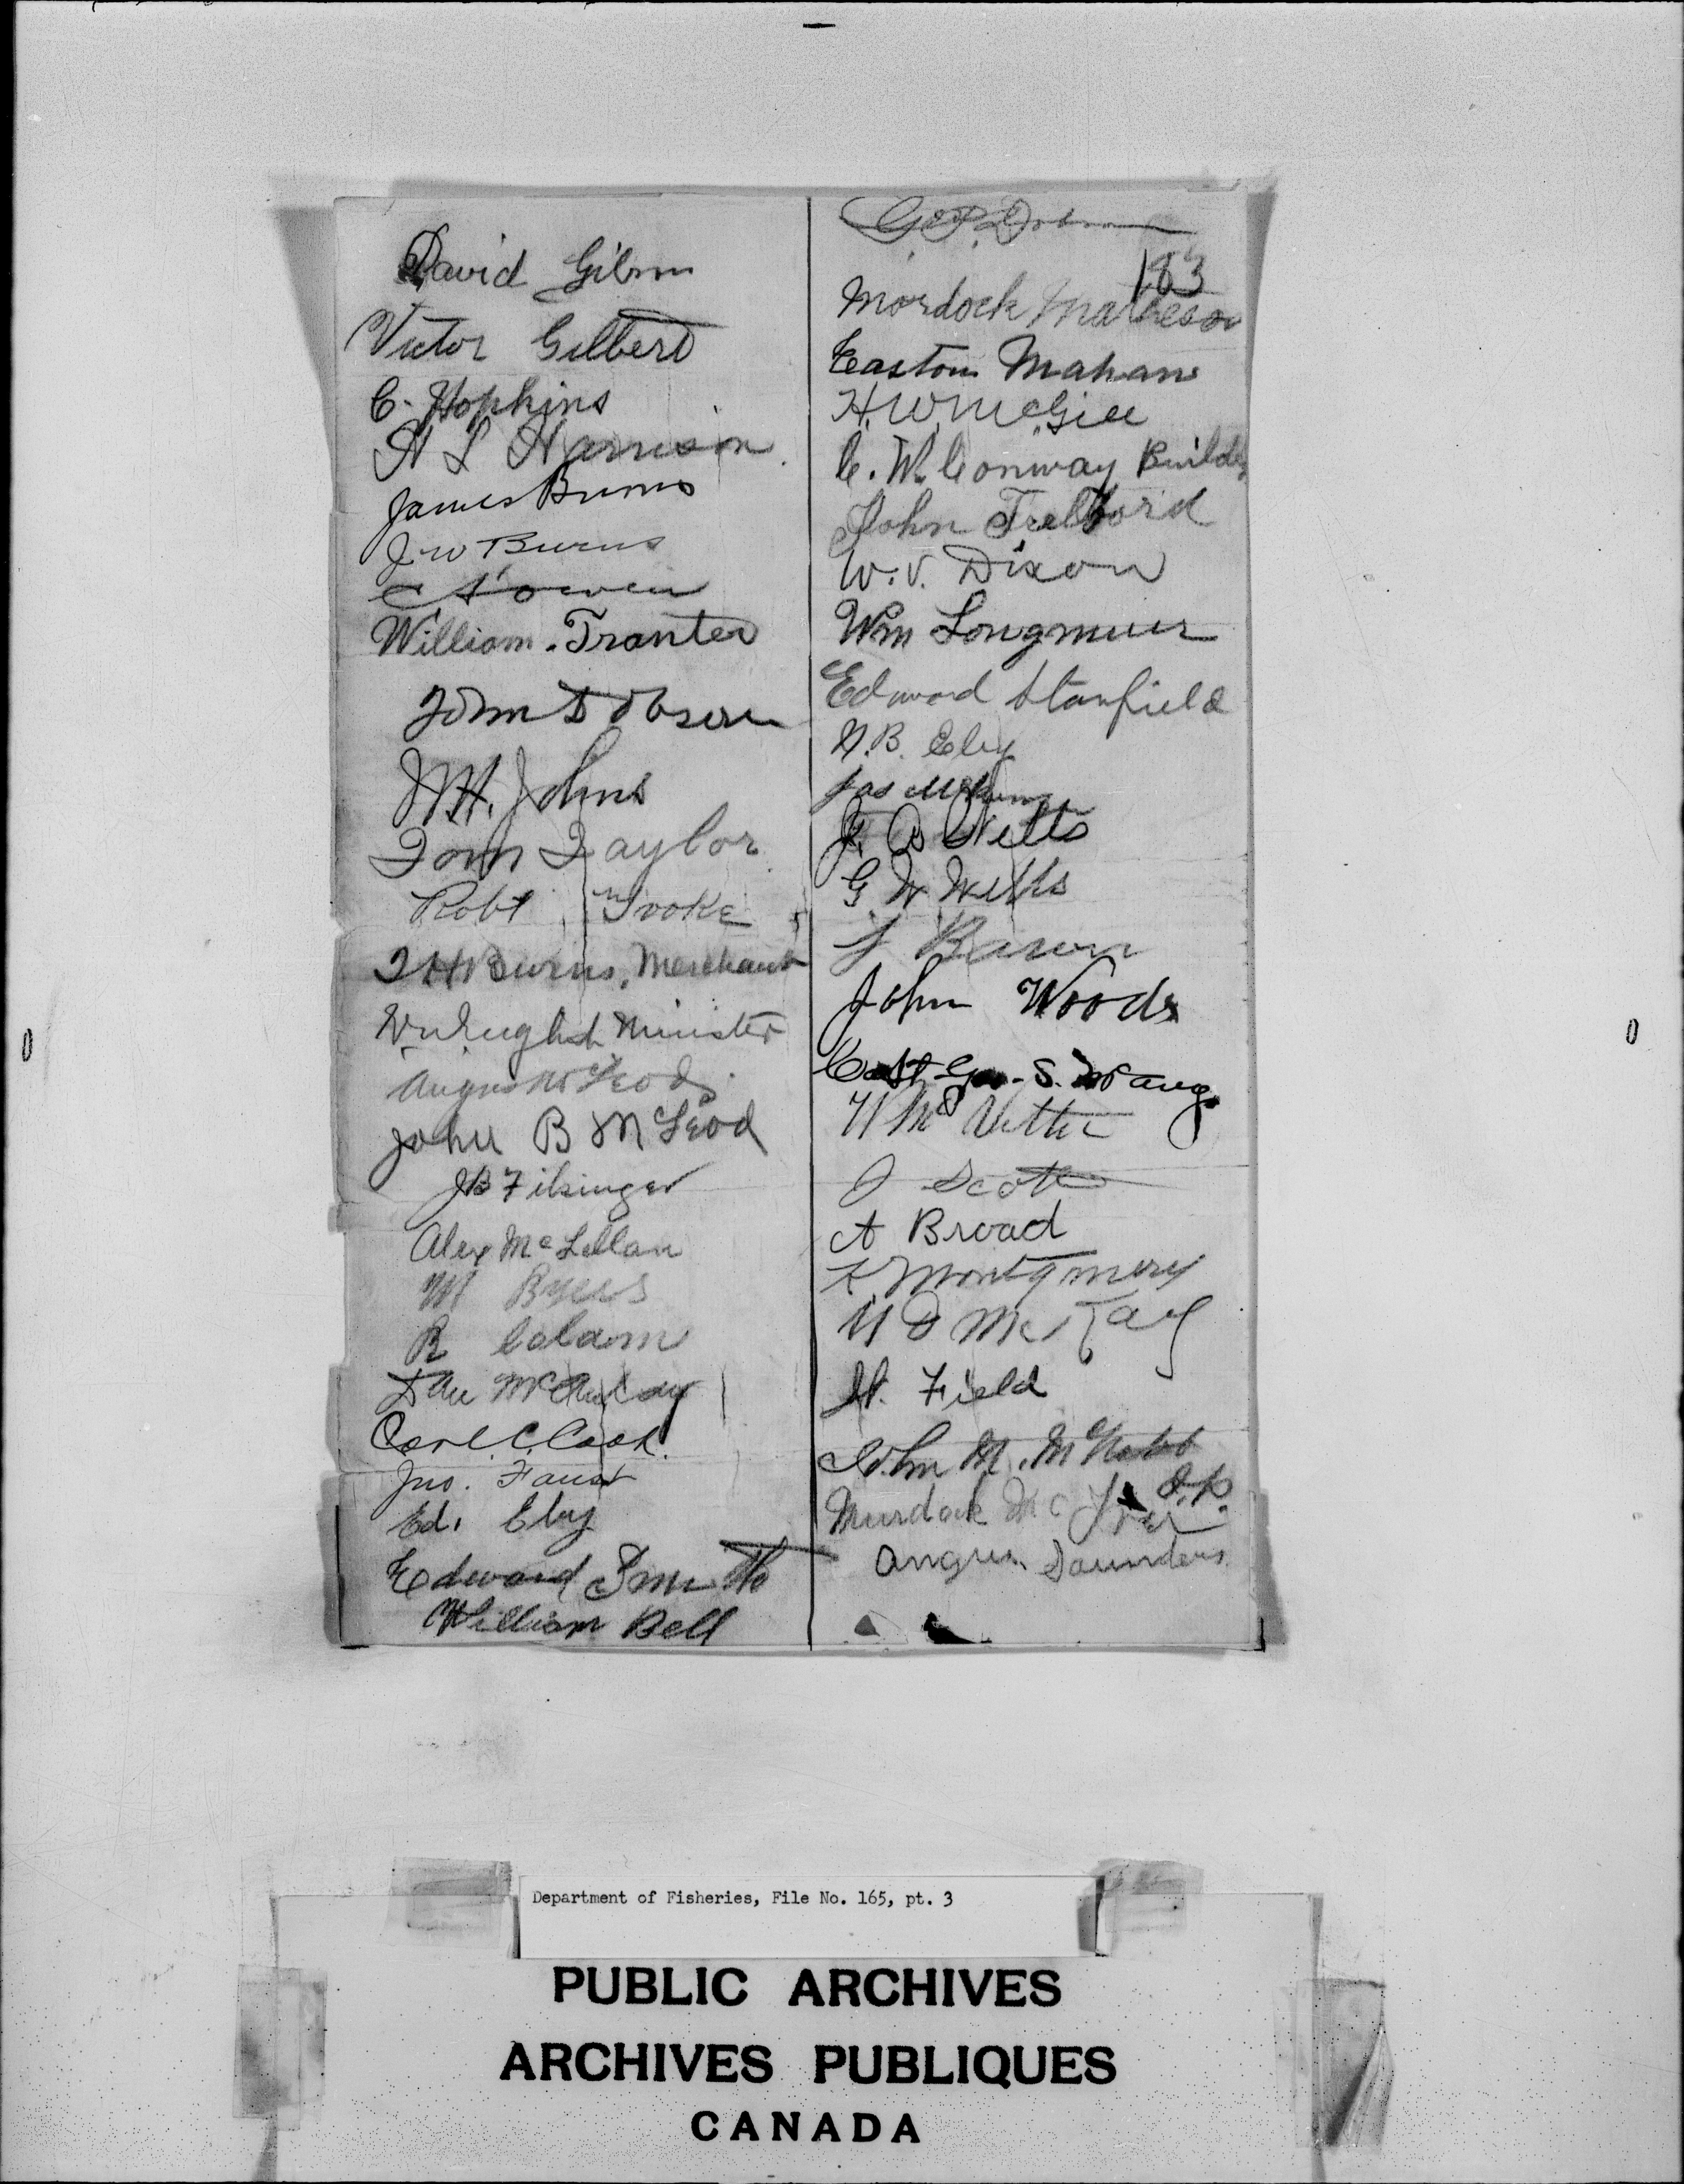 David Gibson
Victor Gilbert
C. Hopkins
H L Harrison
James Burns
J W Burns
William Tranter
John Dobson
J H. Johns
Tom Taylor
Robt Troke
T H Burns, Merchant
Minister
Angus McLeod
John B McLeod
J B Filsinger
Alex McLellan
W Byers
R
Dan McAulay
Carl C. Cook
Jno. Faust
Ed. Eby
Edward Smith
William Bell
183
Mordock Matheson
Easton Mahan
H. W. McGill
C. W. Conway Builder
John Telford
W. V. Dixon
Wm Longmuir
Edward Stanfield
N. B. Eby
Jas
Wells
G W Wells
John Woods
Capt Geo. S.
J Scott
A Broad
Montgomery
N D McKay
H. Field
John M. McNabb
J. P.
Murdock Mc
Angus Saunders
Department of Fisheries, File No. 165, pt. 3
PUBLIC ARCHIVES
ARCHIVES PUBLIQUES
CANADA